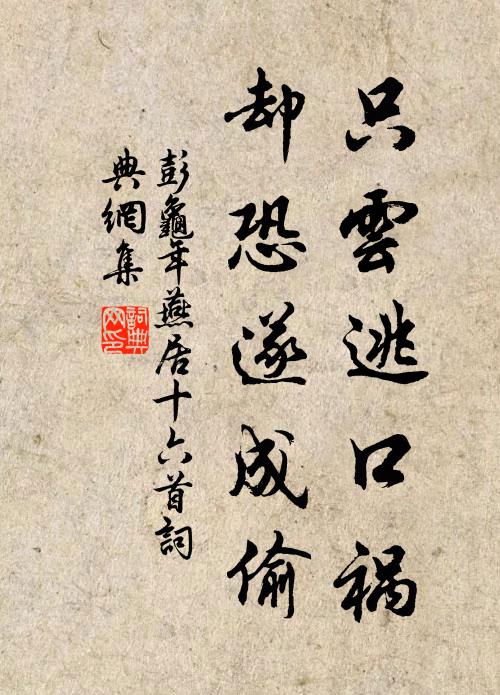 只雲逃口禍
却恐遂成偷
彭龜年燕居十六首詞
典網集
詞典
网印